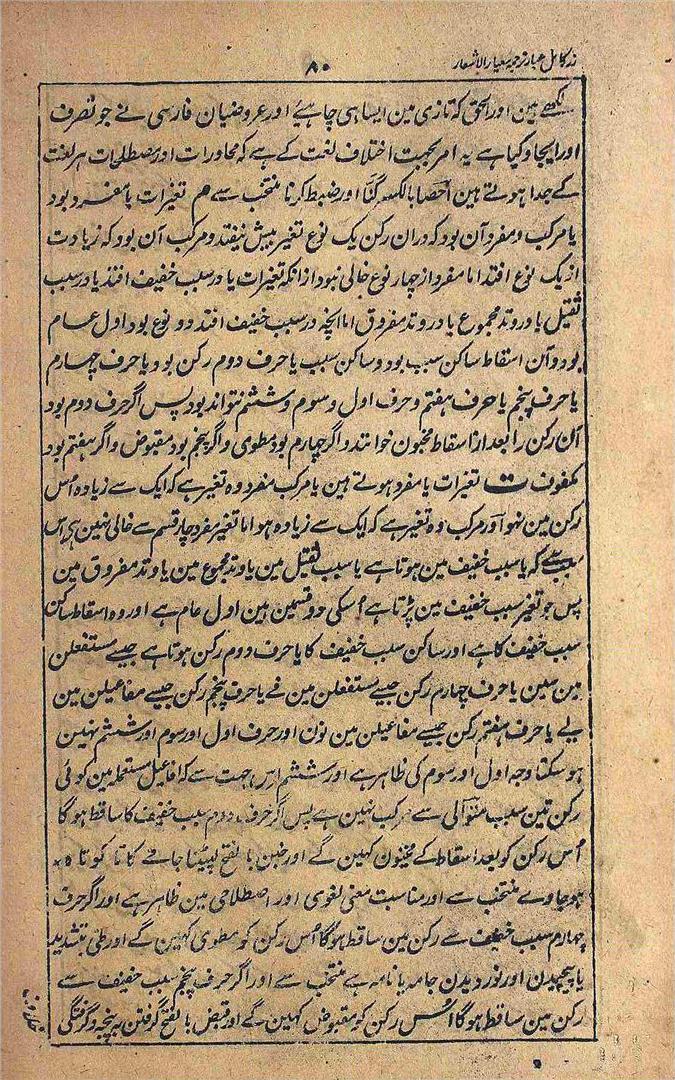 زر کامل عیار ترجمہ معیار الاشعار
۸۰
لکھے ہین اور الحق کہ تازی مین ایسا ہی چاہیے اور عروضیان فارسی نے جو تصرف
اور ایجاد کیا ہے یہ امر بجہت اختلاف لغت کے ہے کہ محاورات اور مصطلحات ہر لغت
کے جدا ہوتے ہین احصا بالکسر گننا اور ضبط کرنا منتخب سے م تغیرات یا مفرد بود
یا مرکب و مفرد آن بود کہ دران رکن یک نوع تغیر بیش نیفتد و مرکب آن بود کہ زیادت
از یک نوع افتد اما مفرد از چہار نوع خالی نبود از انکہ تغیرات یا در سبب خفیف افتد یا در سبب
ثقیل یا در وتد مجموع یا در وتد مفروق اما انچہ در سبب خفیف افتد دو نوع بود اول عام
بود و آن اسقاط ساکن سبب بود و ساکن سبب یا حرف دوم رکن بود و یا حرف چہارم
یا حرف پنجم یا حرف ہفتم و حرف اول و سوم و ششم نتواند بود پس اگر حرف دوم بود
آن رکن را بعد از اسقاط مخبون خوانند و اگر چہارم بود مطوی و اگر پنجم بود مقبوض و اگر ہفتم بود
مکفوف ت تغیرات یا مفرد ہوتے ہین یا مرکب مفرد وہ تغیر ہے کہ ایک سے زیادہ اُس
رکن مین نہو اور مرکب وہ تغیر ہے کہ ایک سے زیادہ ہو اما تغیر مفرد چار قسم سے خالی نہین ہی اس
سبب سے کہ یا سبب خفیف مین ہوتا ہے یا سبب ثقیل مین یا وتد مجموع مین یا وتد مفروق مین
پس جو تغیر سبب خفیف مین پڑتا ہے اُسکی دو قسمین ہین اول عام ہے اور وہ اسقاط ساکن
سبب خفیف کا ہے اور ساکن سبب خفیف کا یا حرف دوم رکن ہوتا ہے جیسے مستفعلن
مین سین یا حرف چہارم رکن جیسے مستفعلن مین فے یا حرف پنجم رکن جیسے مفاعیلن مین
یے یا حرف ہفتم رکن جیسے مفاعیلن مین نون اور حرف اول اور سوم اور ششم نہین
ہو سکتا وجہ اول اور سوم کی ظاہر ہے اور ششم اس جہت سے کہ افاعیل مستعملہ مین کوئی
رکن تین سبب متوالی سے مرکب نہین ہے پس اگر حرف دوم سبب خفیف کا ساقط ہو گا
اُس رکن کو بعد اسقاط کے مخبون کہین گے اور خبن بالفتح لپیٹنا جامے کا تا کوتاہ
ہو جاوے منتخب سے اور مناسبت معنی لغوی اور اصطلاحی مین ظاہر ہے اور اگر حرف
چہارم سبب خفیف سے رکن مین ساقط ہوگا اُس رکن کو مطوی کہین گے اور طی بتشدید
یا پیچیدن اور نوردیدن جامہ یا نامہ ہے منتخب سے اور اگر حرف پنجم سبب خفیف سے
رکن مین ساقط ہوگا اُس رکن کو مقبوض کہین گے اور قبض بالفتح گرفتن بہ پنجہ و گرفتگی